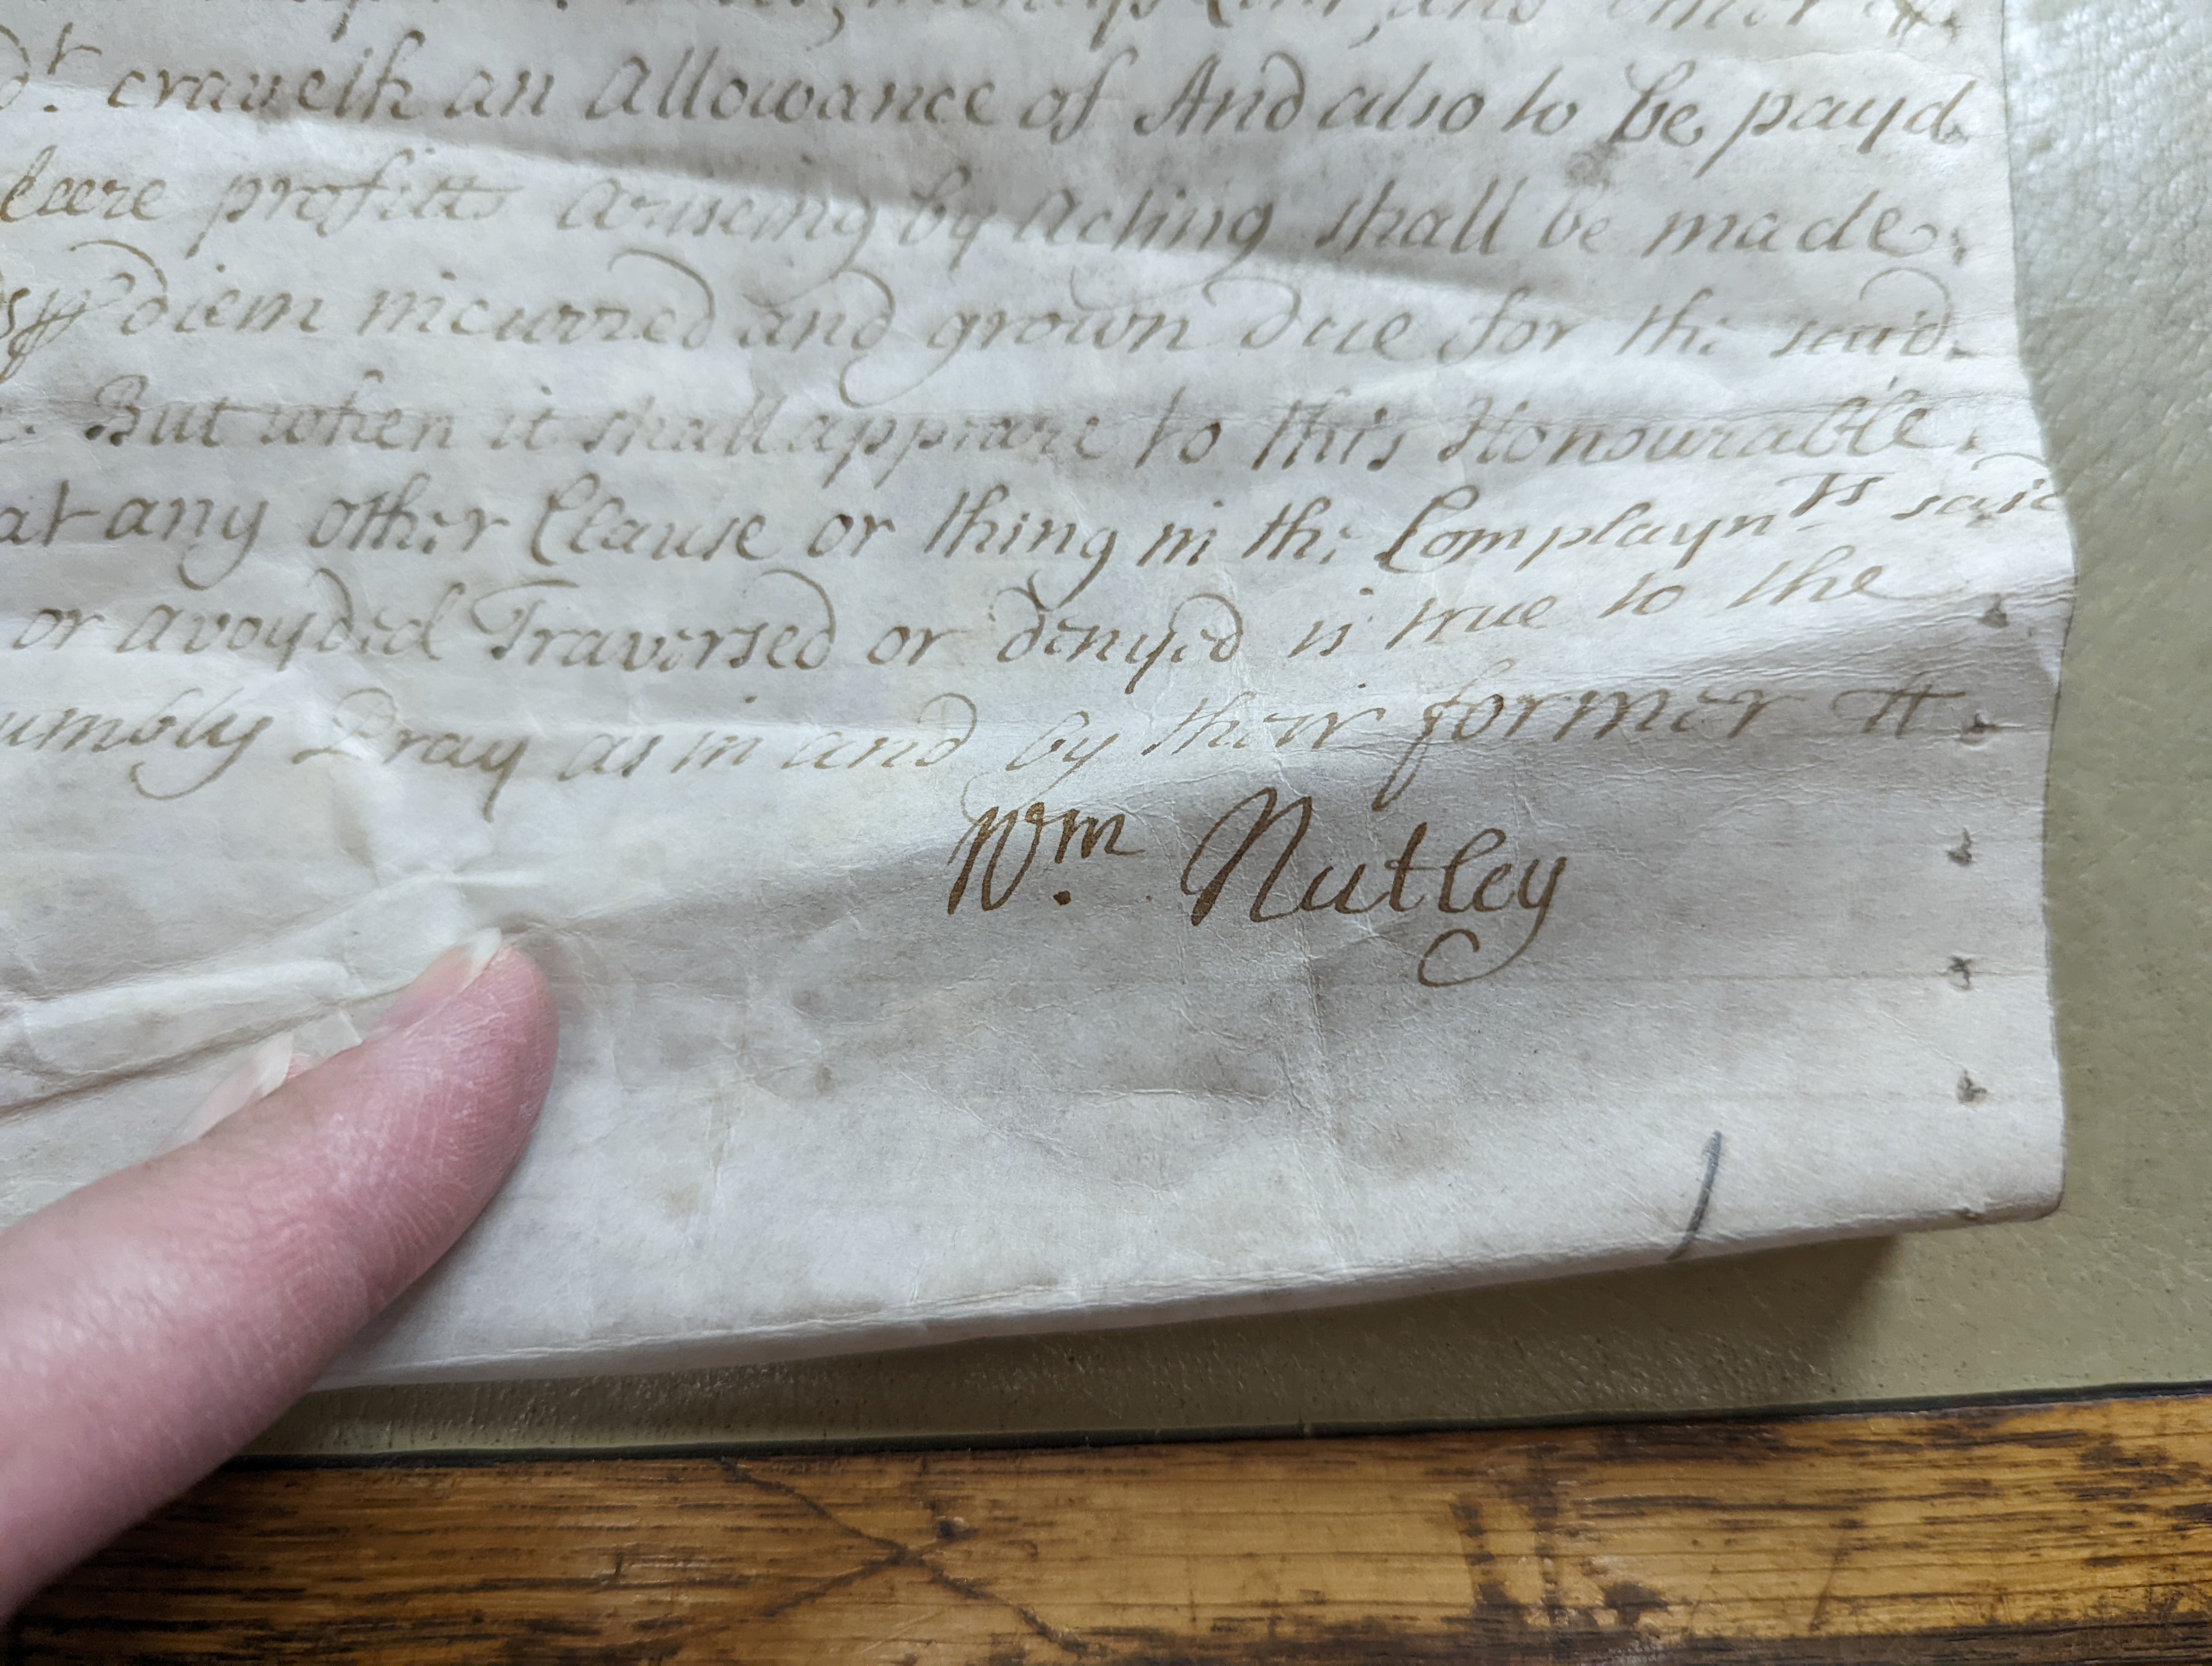 d.t craveth an Allowance of And also to be payd
cleere profitts ariseing by Acting shall be made
diem incurred and grown due for the said
But when it shall appeare to this Honourable
at any other Clause or thing in the Complaynts said
or avoyded Traversed or denyed is true to the
umbly Pray as in and by their former A
Wm Nutley